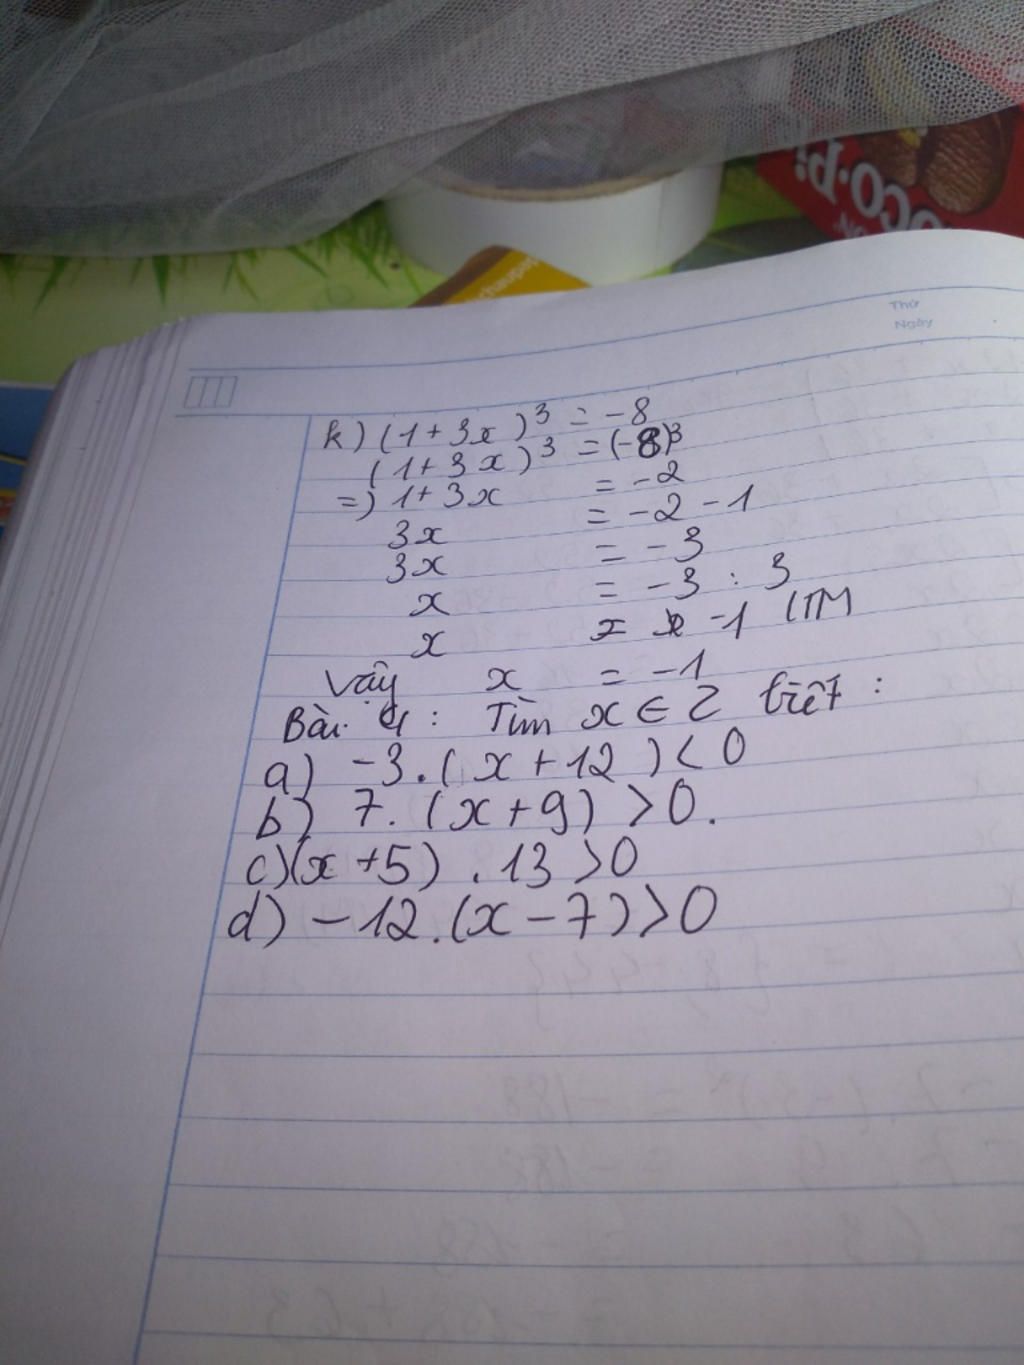 OCO·Pi
Thứ
Ngày
k) (1+3x)³ = -8
(1+3x)³ = (-8)³
=) 1+3x = -2
3x = -2 - 1
3x = -3
x = -3 : 3
x = -1 (TM
Vậy x = -1
Bài 4 : Tìm x ∈ Z biết :
a) -3.(x+12)<0
b) 7.(x+9) >0.
c)(x+5) . 13 >0
d) -12.(x-7)>0